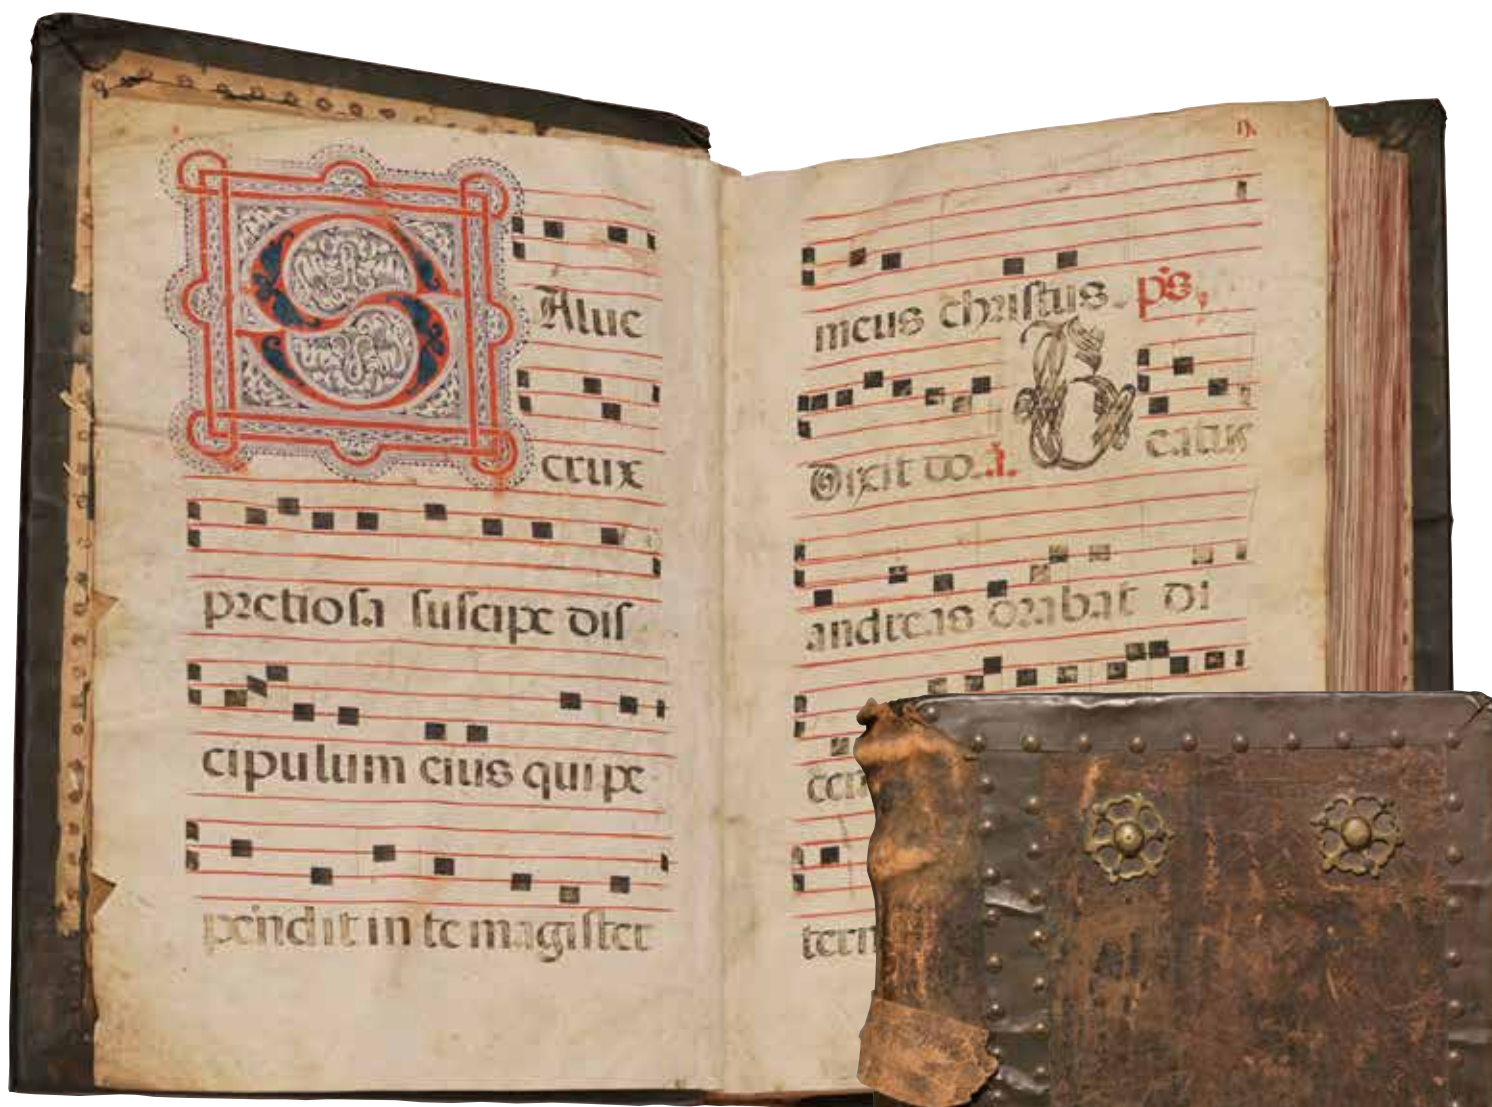 SAluc
crux
preciosa suscipe dis
cipulum eius qui pe
pendit in te magister
meus christus. ps,
Dixit do. i. Beatus
andreas orabat di
cen
tern